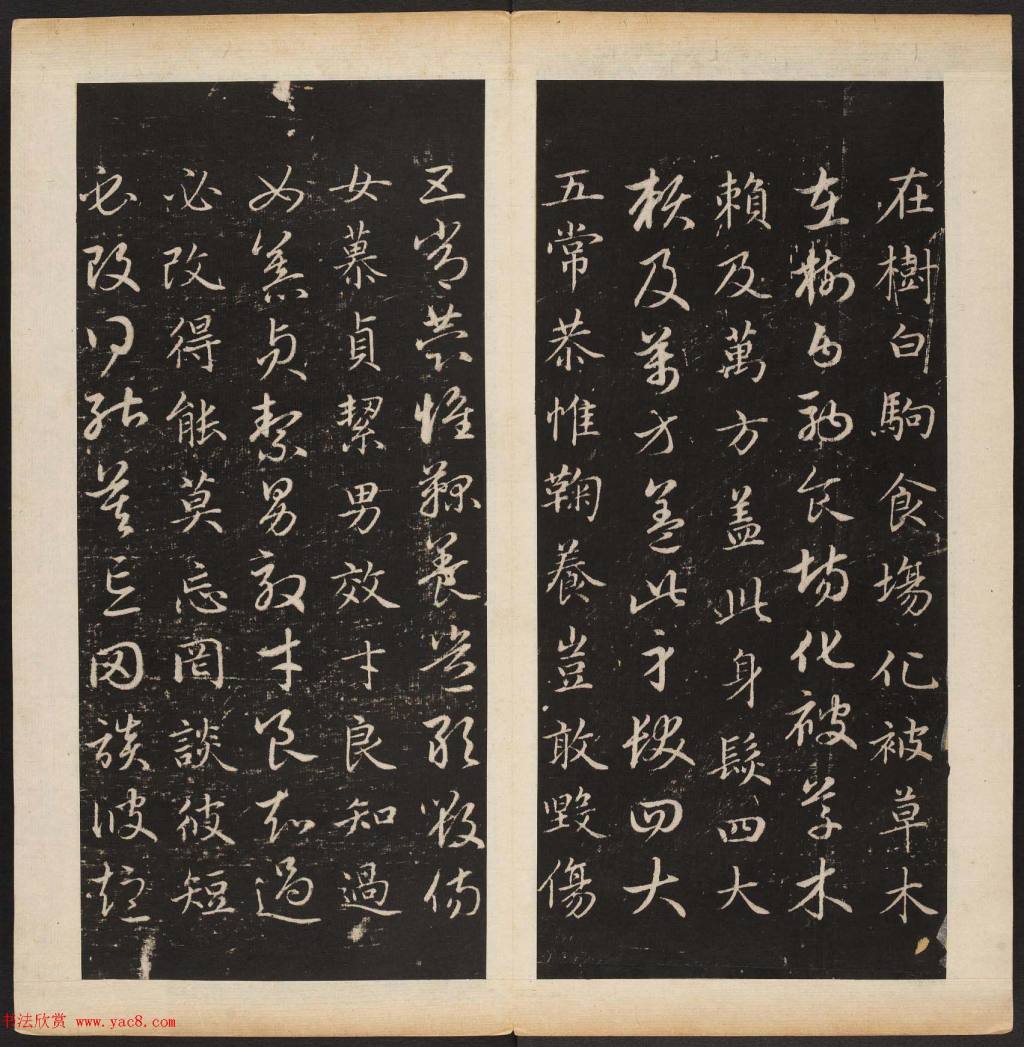 在樹白駒食塲化被草木
在樹白駒食場化被草木
賴及萬方盖此身髮四大
賴及萬方盖此身髮四大
五常恭惟鞠養豈敢毀傷
五常恭惟鞠養豈敢毀傷
女慕貞絜男效才良知過
女慕貞絜男效才良知過
必改得能莫忘罔談彼短
必改得能莫忘罔談彼短
书法欣赏 www.yac8.com